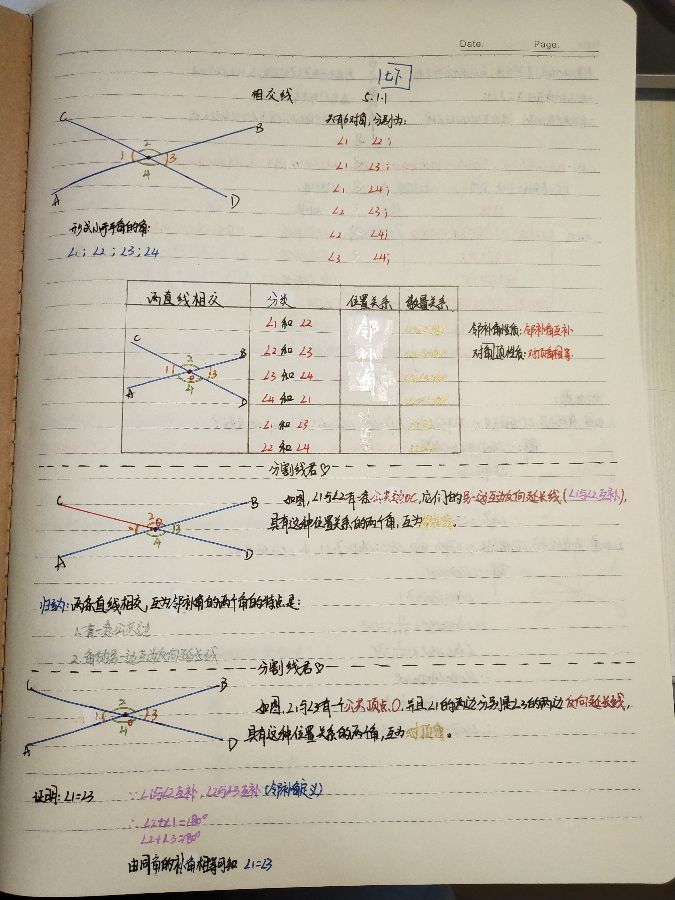 Date.    Page.
七下
相交线    5.1.1
共有6对角，分别为：
C B A D 1 2 3 4
∠1 ∠2；
∠1 ∠3；
∠1 ∠4；
∠2 ∠3；
∠2 ∠4；
∠3 ∠4；
形成小于平角的角：
∠1；∠2；∠3；∠4
两直线相交 分类 位置关系 数量关系
C B A D 1 2 3 4 O
∠1 和 ∠2
∠2 和 ∠3
∠3 和 ∠4
∠4 和 ∠1
∠1 和 ∠3
∠2 和 ∠4
邻补角
邻补角性质：邻补角互补
对角顶性质：对顶角相等
分割线君
C B A D 1 2 3 4 O
如图，∠1与∠2有一条公共边OC，它们的另一边互为反向延长线(∠1与∠2互补)，
具有这种位置关系的两个角，互为邻补角。
归纳：两条直线相交，互为邻补角的两个角的特点是：
1.有一条公共边
2.角的另一边互为反向延长线
分割线君
C B A D 1 2 3 4 O
如图，∠1与∠3有一个公共顶点O，并且∠1的两边分别是∠3的两边反向延长线，
具有这种位置关系的两个角，互为对顶角。
证明：∠1=∠3    ∵∠1与∠2互补，∠2与∠3互补(邻补角定义)
∴∠2+∠1=180°
∠2+∠3=180°
由同角的补角相等可知 ∠1=∠3